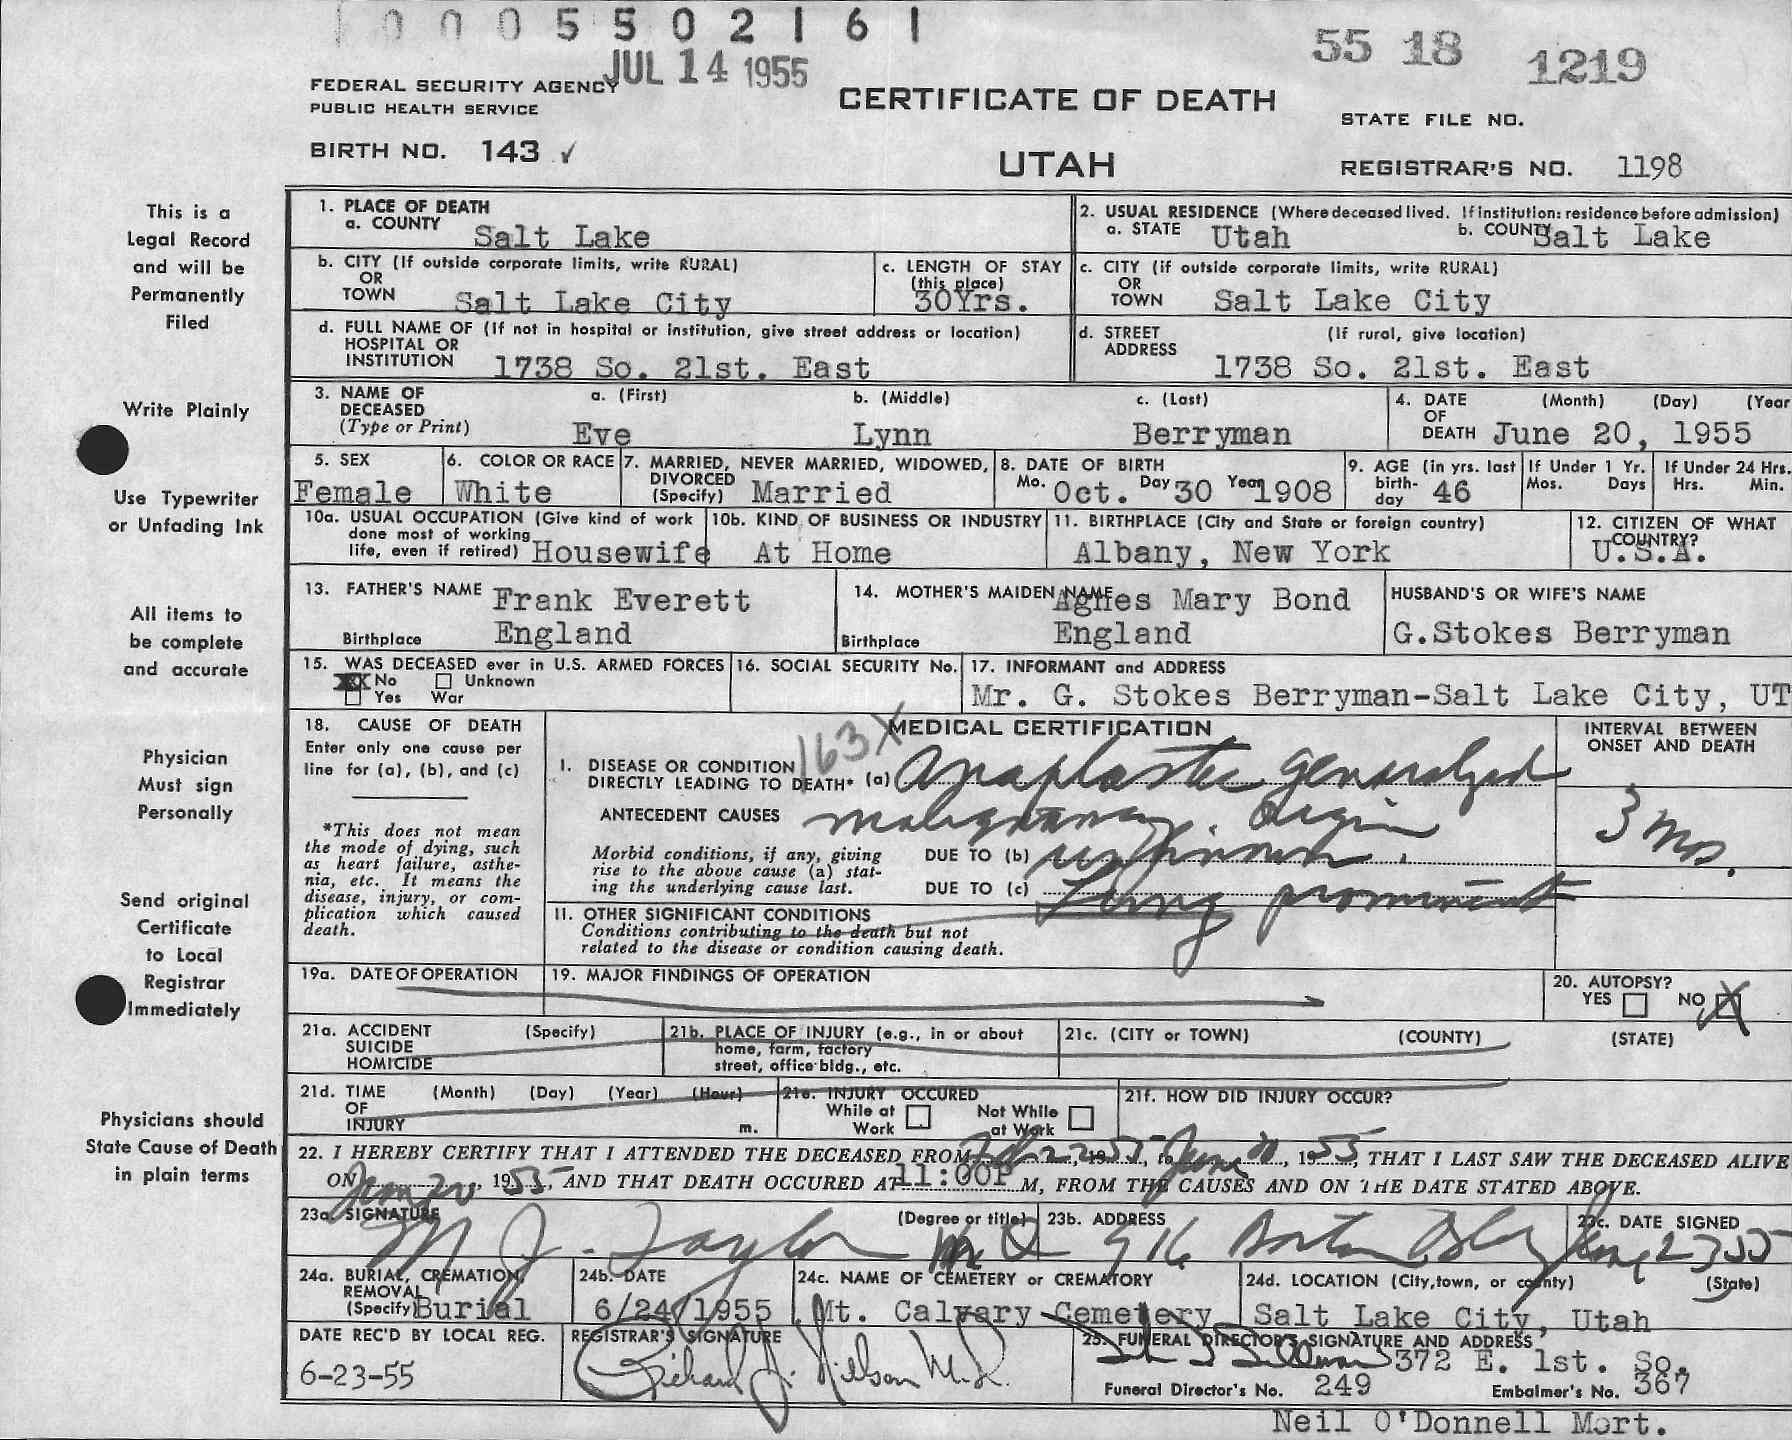 0005502161
JUL 14 1955
55 18 1219
FEDERAL SECURITY AGENCY
PUBLIC HEALTH SERVICE
CERTIFICATE OF DEATH
STATE FILE NO.
BIRTH NO. 143 ✓
UTAH
REGISTRAR'S NO. 1198
This is a
Legal Record
and will be
Permanently
Filed
Write Plainly
Use Typewriter
or Unfading Ink
All items to
be complete
and accurate
Physician
Must sign
Personally
Send original
Certificate
to Local
Registrar
Immediately
Physicians should
State Cause of Death
in plain terms
1. PLACE OF DEATH
a. COUNTY Salt Lake
2. USUAL RESIDENCE (Where deceased lived. If institution: residence before admission)
a. STATE Utah b. COUNTY Salt Lake
b. CITY (If outside corporate limits, write RURAL)
OR
TOWN Salt Lake City
c. LENGTH OF STAY
(this place)
30Yrs.
c. CITY (if outside corporate limits, write RURAL)
OR
TOWN Salt Lake City
d. FULL NAME OF (If not in hospital or institution, give street address or location)
HOSPITAL OR
INSTITUTION 1738 So. 21st. East
d. STREET (If rural, give location)
ADDRESS 1738 So. 21st. East
3. NAME OF a. (First) b. (Middle) c. (Last)
DECEASED
(Type or Print) Eve Lynn Berryman
4. DATE (Month) (Day) (Year
OF
DEATH June 20, 1955
5. SEX
Female
6. COLOR OR RACE
White
7. MARRIED, NEVER MARRIED, WIDOWED,
DIVORCED
(Specify) Married
8. DATE OF BIRTH
Mo. Oct. Day 30 Year 1908
9. AGE (in yrs. last
birth-
day 46
If Under 1 Yr.
Mos. Days
If Under 24 Hrs.
Hrs. Min.
10a. USUAL OCCUPATION (Give kind of work
done most of working
life, even if retired) Housewife
10b. KIND OF BUSINESS OR INDUSTRY
At Home
11. BIRTHPLACE (City and State or foreign country)
Albany, New York
12. CITIZEN OF WHAT
COUNTRY?
U.S.A.
13. FATHER'S NAME Frank Everett
Birthplace England
14. MOTHER'S MAIDEN NAME Agnes Mary Bond
Birthplace England
HUSBAND'S OR WIFE'S NAME
G.Stokes Berryman
15. WAS DECEASED ever in U.S. ARMED FORCES
XXX No Unknown
Yes War
16. SOCIAL SECURITY No.
17. INFORMANT and ADDRESS
Mr. G. Stokes Berryman-Salt Lake City, UT
18. CAUSE OF DEATH
Enter only one cause per
line for (a), (b), and (c)
*This does not mean
the mode of dying, such
as heart failure, asthe-
nia, etc. It means the
disease, injury, or com-
plication which caused
death.
163X
MEDICAL CERTIFICATION
INTERVAL BETWEEN
ONSET AND DEATH
I. DISEASE OR CONDITION
DIRECTLY LEADING TO DEATH* (a) Anaplastic generalized
ANTECEDENT CAUSES malignancy. Origin
3 mos.
Morbid conditions, if any, giving
rise to the above cause (a) stat-
ing the underlying cause last.
DUE TO (b) unknown.
DUE TO (c) Lung prominent
II. OTHER SIGNIFICANT CONDITIONS
Conditions contributing to the death but not
related to the disease or condition causing death.
19a. DATE OF OPERATION
19. MAJOR FINDINGS OF OPERATION
20. AUTOPSY?
YES NO X
21a. ACCIDENT (Specify)
SUICIDE
HOMICIDE
21b. PLACE OF INJURY (e.g., in or about
home, farm, factory
street, office bldg., etc.
21c. (CITY or TOWN) (COUNTY) (STATE)
21d. TIME (Month) (Day) (Year) (Hour)
OF
INJURY m.
21e. INJURY OCCURED
While at Work
Not While at Work
21f. HOW DID INJURY OCCUR?
22. I HEREBY CERTIFY THAT I ATTENDED THE DECEASED FROM 1955, to June 20, 1955, THAT I LAST SAW THE DECEASED ALIVE
ON June 20, 1955, AND THAT DEATH OCCURED AT 11:00P M, FROM THE CAUSES AND ON THE DATE STATED ABOVE.
23a. SIGNATURE (Degree or title)
M J. Taylor M D
23b. ADDRESS
916 Boston Bldg
23c. DATE SIGNED
June 23 55
24a. BURIAL, CREMATION,
REMOVAL
(Specify) Burial
24b. DATE
6/24/1955
24c. NAME OF CEMETERY or CREMATORY
Mt. Calvary Cemetery
24d. LOCATION (City, town, or county) (State)
Salt Lake City, Utah
DATE REC'D BY LOCAL REG.
6-23-55
REGISTRAR'S SIGNATURE
Richard J. Nelson M.D.
25. FUNERAL DIRECTOR'S SIGNATURE AND ADDRESS
372 E. 1st. So.
Funeral Director's No. 249 Embalmer's No. 367
Neil O'Donnell Mort.